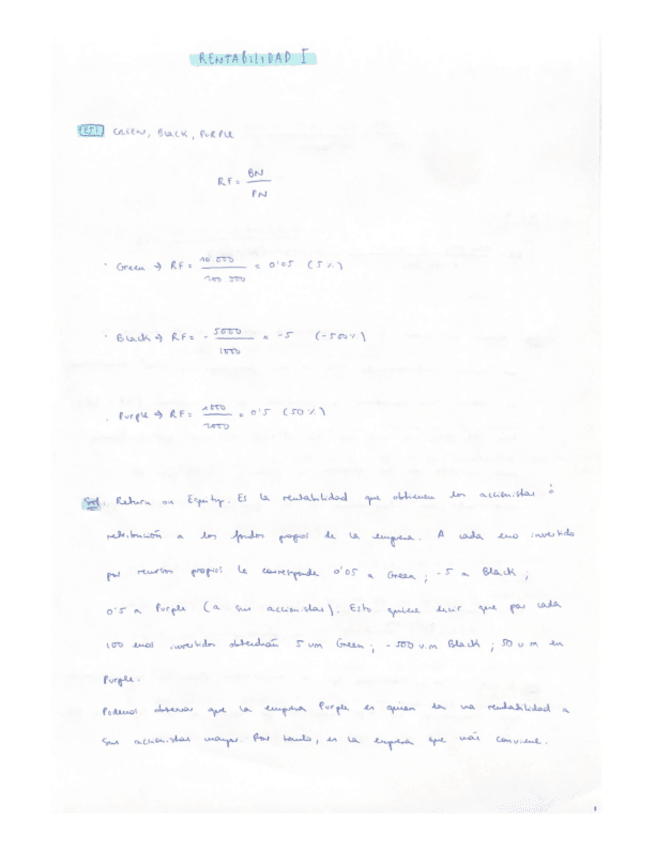 RENTABILIDAD I
EJ.1 GREEN, BLACK, PURPLE
RF = BN
PN
· Green → RF = 10.000 = 0'05 (5%)
000
· Black → RF = - 5000 = -5 (-500%)
1000
· Purple → RF = 1000 = 0'5 (50%)
2000
Sol. Return on Equity. Es la rentabilidad que obtienen los accionistas ó
retribución a los fondos propios de la empresa. A cada euro invertido
por recursos propios le corresponde 0'05 a Green; -5 a Black;
0'5 a Purple (a sus accionistas). Esto quiere decir que por cada
100 euros invertidos obtendrán 5 um Green; -500 u.m Black; 50 u m en
Purple.
Podemos observar que la empresa Purple es quien da una rentabilidad a
sus accionistas mayor. Por tanto, es la empresa que más conviene.